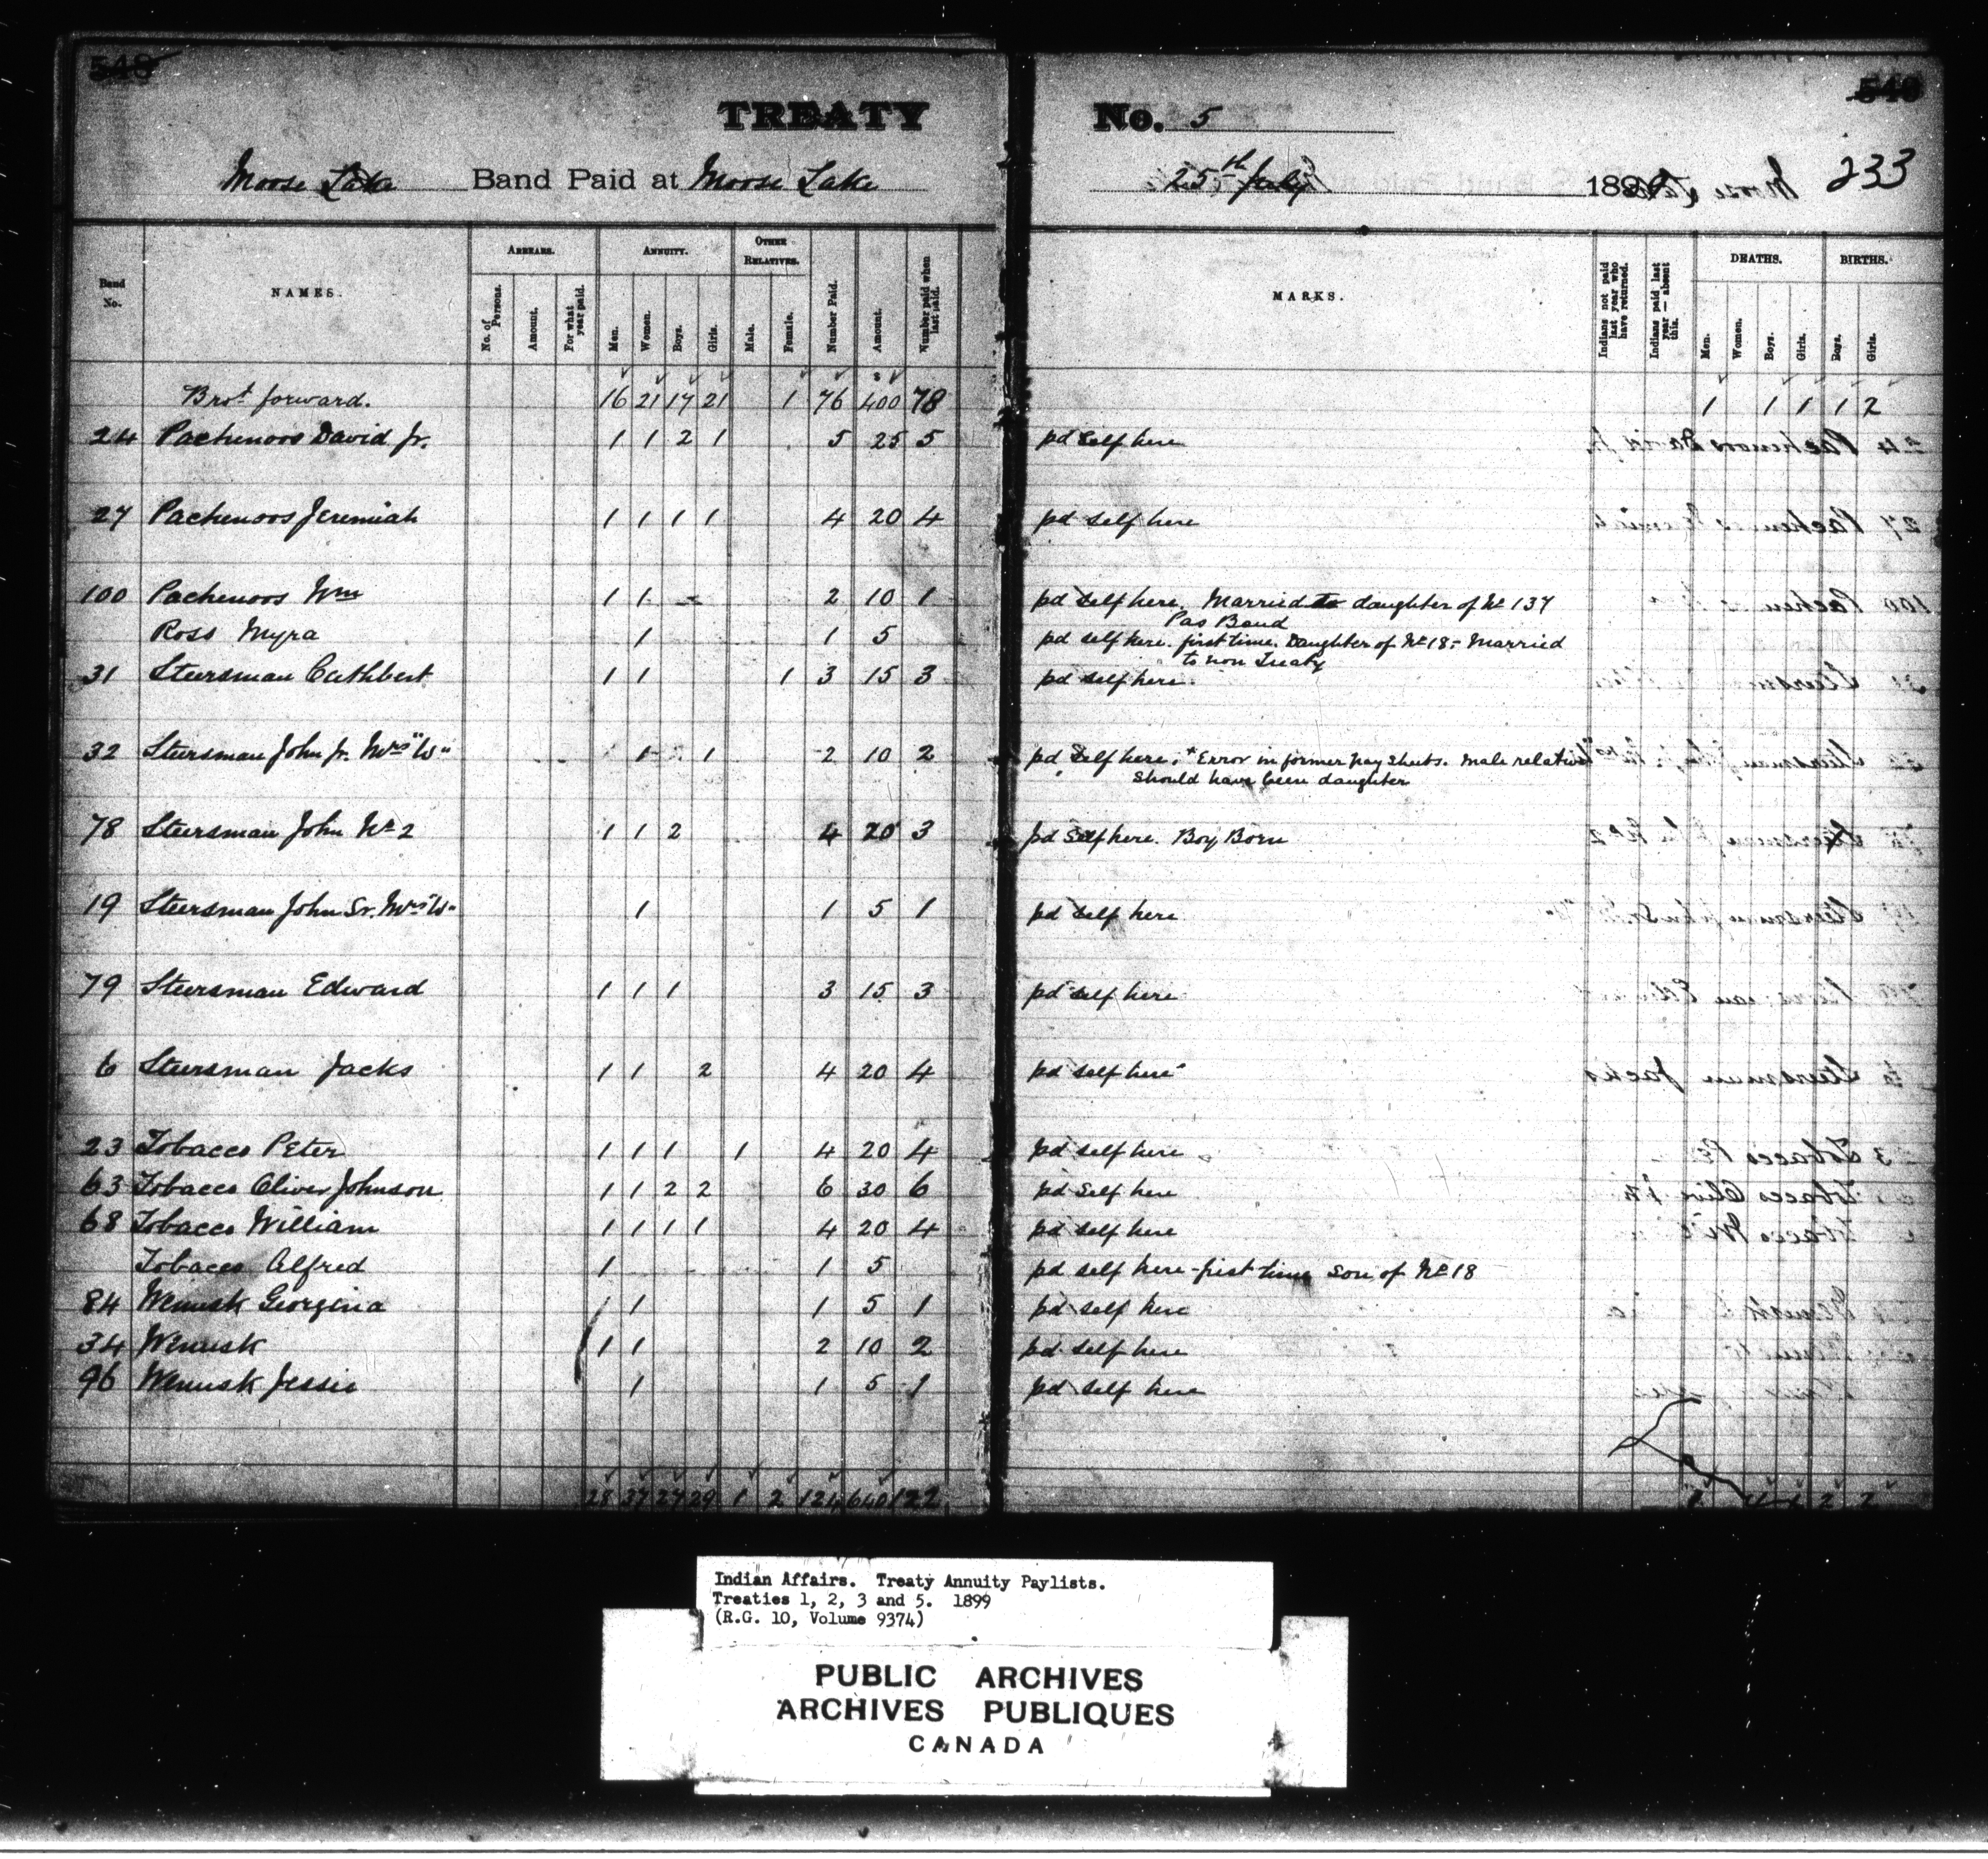 548
549
TREATY No. 5
Moose Lake Band Paid at Moose Lake 25th July 1899 233
Band No. NAMES. ARREARS. ANNUITY. OTHER RELATIVES. Number Paid. Amount. Number paid when last paid. MARKS. Indians not paid last year who have returned. Indians paid last year — absent this. DEATHS. BIRTHS.
No. of Persons. Amount. For what year paid. Men. Women. Boys. Girls. Male. Female. Men. Women. Boys. Girls. Boys. Girls.
Brot forward. 16 21 17 21 1 76 400 78 1 1 1 1 2
24 Pachenoos David Jr. 1 1 2 1 5 25 5 pd Self here
27 Pachenoos Jeremiah 1 1 1 1 4 20 4 pd self here
100 Pachenoos Wm 1 1 2 10 1 pd Self here. Married to daughter of No 137
Pas Band
Ross Myra 1 1 5 pd self here. first time. Daughter of No 18 - Married
to non Treaty
31 Steersman Cuthbert 1 1 1 3 15 3 pd self here.
32 Steersman John Jr. Mrs "W" 1 1 2 10 2 pd Self here. * Error in former pay sheets. Male relative
should have been daughter
78 Steersman John No 2 1 1 2 4 20 3 pd Self here. Boy Born
19 Steersman John Sr. Mrs "W" 1 1 5 1 pd self here
79 Steersman Edward 1 1 1 3 15 3 pd self here
6 Steersman Jacks 1 1 2 4 20 4 pd self here
23 Tobacco Peter 1 1 1 1 4 20 4 pd self here
63 Tobacco Oliver Johnson 1 1 2 2 6 30 6 pd Self here
68 Tobacco William 1 1 1 1 4 20 4 pd self here
Tobacco Alfred 1 1 5 pd self here - first time son of No 18
84 Wenusk Georgina 1 1 5 1 pd self here
34 Wenusk 1 1 2 10 2 pd self here
96 Wenusk Jessie 1 1 5 1 pd self here
28 37 27 29 1 2 124 640 122 1 1 1 2 2
Indian Affairs. Treaty Annuity Paylists.
Treaties 1, 2, 3 and 5. 1899
(R.G. 10, Volume 9374)
PUBLIC ARCHIVES
ARCHIVES PUBLIQUES
CANADA